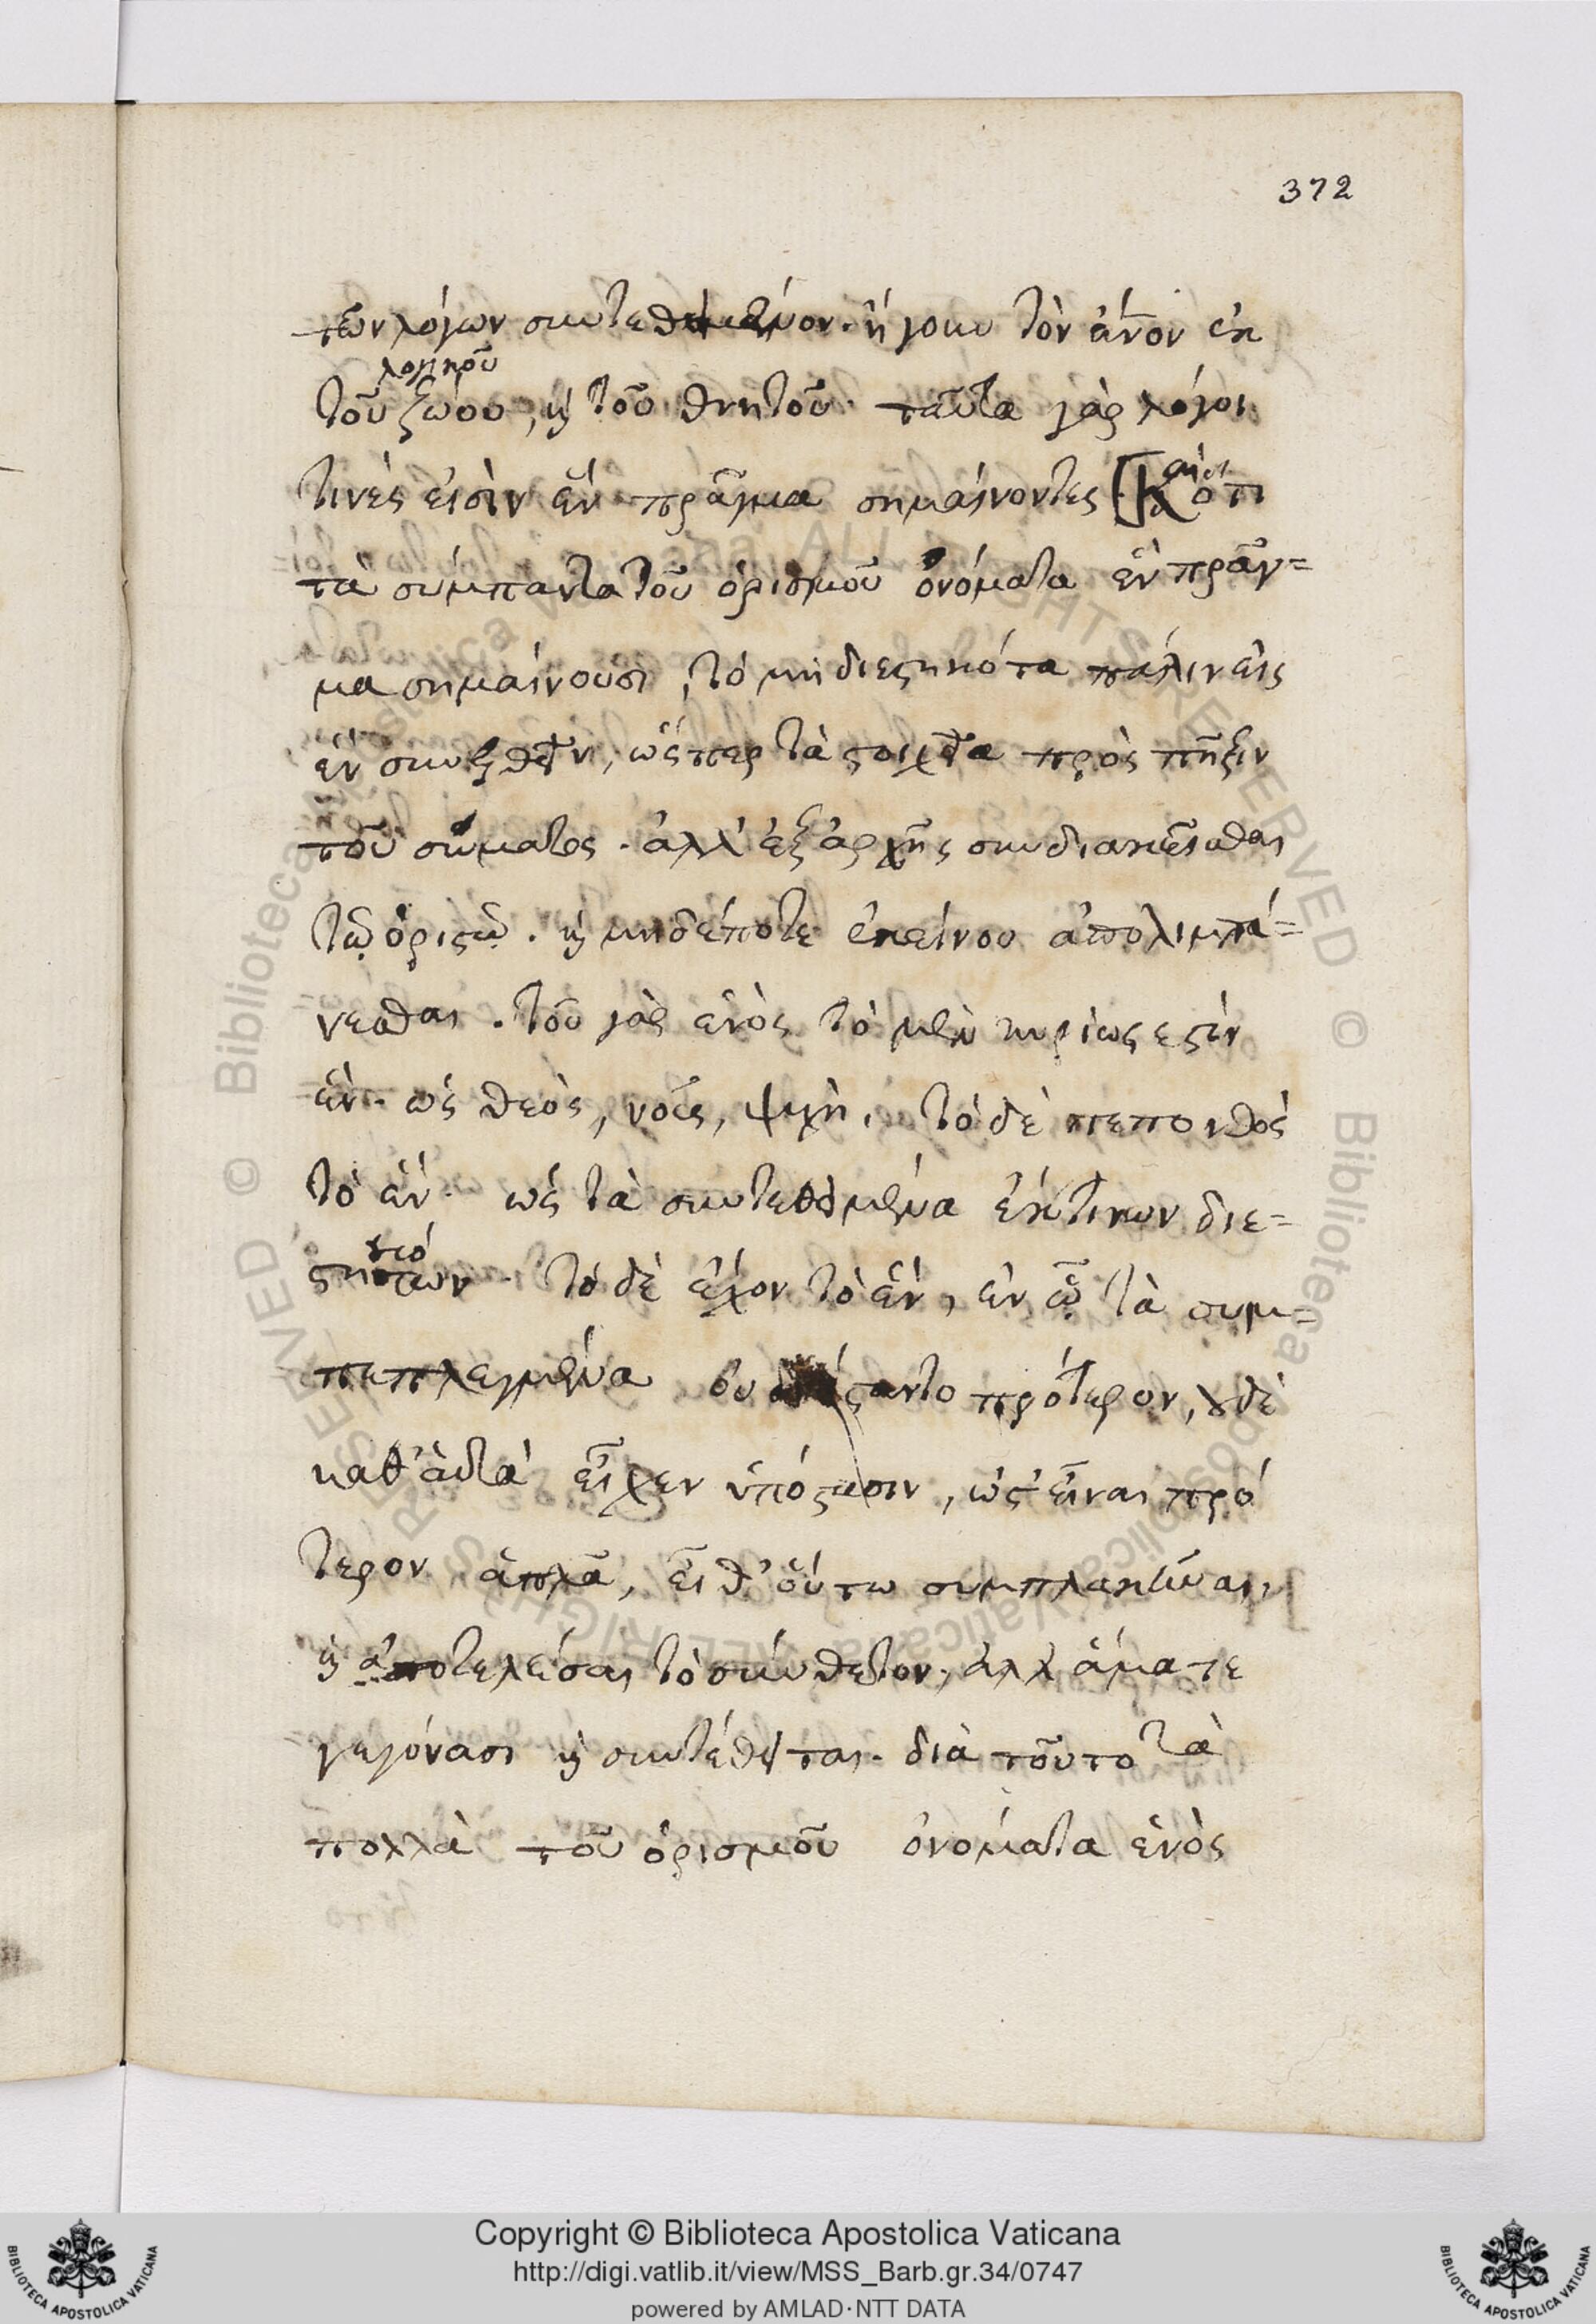 372
τῶν λόγων συντεθειμένον. ἤγουν τὸν ἄνον ἐκ
λογικοῦ
τοῦ ζώου, ϗ τοῦ θνητοῦ. ταῦτα γὰρ λόγοι
τινές εἰσὶν ἓν πρᾶγμα σημαίνοντες [ ὅτι
τὰ σύμπαντα τοῦ ὁρισμοῦ ὀνόματα ἓν πρᾶγ=
μα σημαίνουσι, τὸ μὴ διεϛηκότα πάλιν εἰς
ἓν συνελθεῖν, ὥσπερ τὰ ϛοιχεῖα πρὸς πῆξιν
τοῦ σώματος. ἀλλ' ἐξ ἀρχῆς συνδιακεῖσθαι
τῷ ὁριϛῷ. ϗ μηδέποτε ἐκείνου ἀπολιμπά=
νεσθαι. τοῦ γὰρ ἑνὸς τὸ μὲν κυρίως εϛὶν
ἓν. ὡς θεὸς, νοῦς, ψυχὴ. τὸ δὲ πεπονθὸς
τὸ ἓν. ὡς τὰ συντεθειμένα ἔκ τινων διε=
κό
ϛηκότων. τὸ δὲ ἔχον τὸ ἓν, ἐν ᾧ τὰ συμ=
πεπλεγμένα οὐ πρότερον, ȣδὲ
καθ' ἁυτὰ εἶχεν ὑπόϛασιν, ὡς εἶναι πρό
τερον ἁπλᾶ, εἶθ' οὕτω συμπλακῆναι,
ϗ ἀποτελέσαι τὸ σύνθετον, ἀλλ' ἅμα τε
γεγόνασι ϗ συντέθειται. διὰ τοῦτο τὰ
πολλὰ τοῦ ὁρισμοῦ ὀνόματα ἑνὸς
© Biblioteca Apostolica Vaticana ALL RIGHTS RESERVED
Copyright © Biblioteca Apostolica Vaticana
http://digi.vatlib.it/view/MSS_Barb.gr.34/0747
powered by AMLAD·NTT DATA
BIBLIOTECA APOSTOLICA VATICANA
BIBLIOTECA APOSTOLICA VATICANA